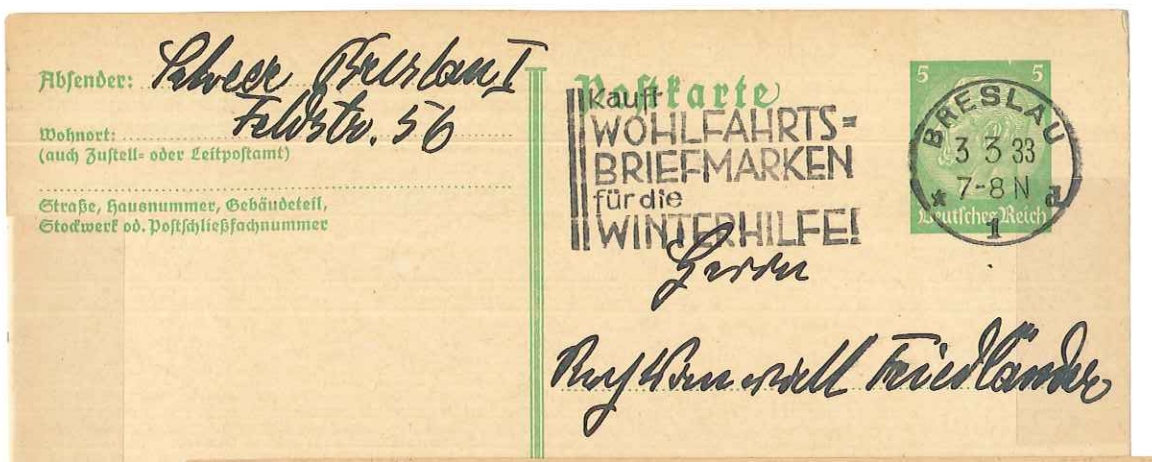 Absender: Breslau I
Feldstr. 56
Wohnort:
(auch Zustell- oder Leitpostamt)
Straße, Hausnummer, Gebäudeteil,
Stockwerk od. Postschließfachnummer
Postkarte
kauft
WOHLFAHRTS=
BRIEFMARKEN
für die
WINTERHILFE!
5 5
Deutsches Reich
BRESLAU
3 3 33
7-8 N
* 1 d
Herrn
Rechtsanwalt Friedländer